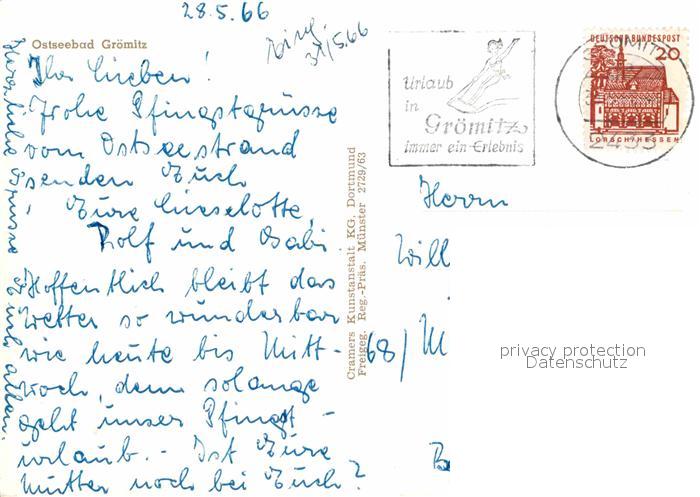 28.5.66
31/5.66
Ostseebad Grömitz
Ihr Lieben!
Frohe Pfingstgrüsse
vom Ostseestrand
senden Euch
Eure Lieselotte,
Rolf und Gabi.
Hoffentlich bleibt das
Wetter so wunderbar
wie heute bis Mitt-
woch, denn solange
geht unser Pfingst-
urlaub. - Ist Eure
Mutter noch bei Euch?
Herzliche Grüsse Euch allen.
Cramers Kunstanstalt KG. Dortmund
Freigeg. Reg.-Präs. Münster 2729/63
Urlaub
in
Grömitz
immer ein Erlebnis
DEUTSCHE BUNDESPOST
20
LORSCH/HESSEN
GRÖMITZ
Herrn
Will
68/M
B
privacy protection
Datenschutz